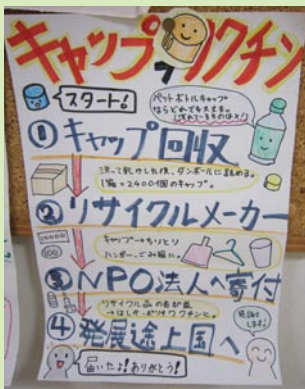 キャップ ワクチン
スタート!
ペットボトルキャップ
① キャップ回収
洗って乾かした後、ダンボールに詰める。
1箱=2400個のキャップ。
② リサイクルメーカー
キャップ→ちりとり
ハンガー、ごみ箱に。
③ NPO法人へ寄付
リサイクル品の
④ 発展途上国へ
届いたよ!ありがとう!